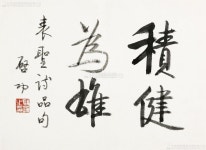 積健
為雄
表聖詩品句
啓功